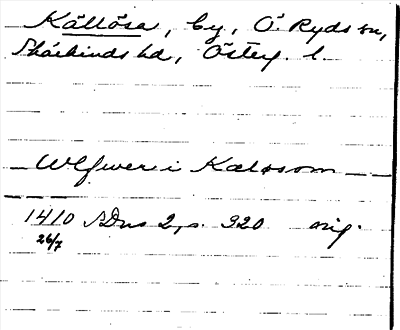 Källösa, by, Ö. Ryds sn,
Skärkinds hd, Österg. l.
Ulfwer i Kalosom
1410 SDns 2, s. 320 orig.
26/7